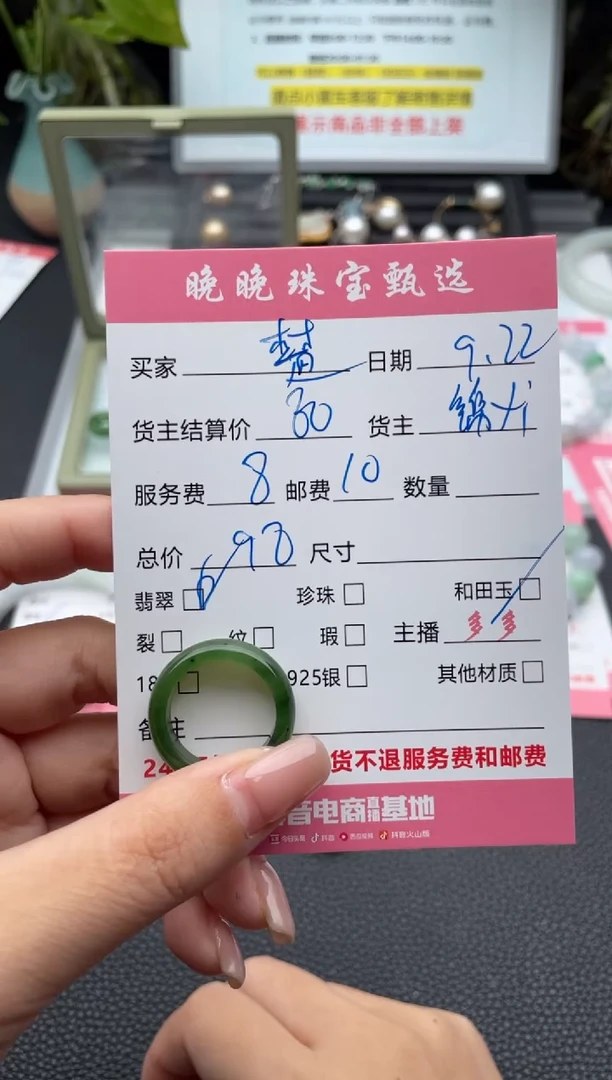 晚晚珠宝甄选
买家 楚 日期 9.22
货主结算价 80 货主
服务费 8 邮费 10 数量
总价 98 尺寸
翡翠 珍珠 和田玉
裂 纹 瑕 主播 多多
18 925银 其他材质
备注
24 货不退服务费和邮费
音电商直播基地
今日头条 抖音 西瓜视频 抖音火山版